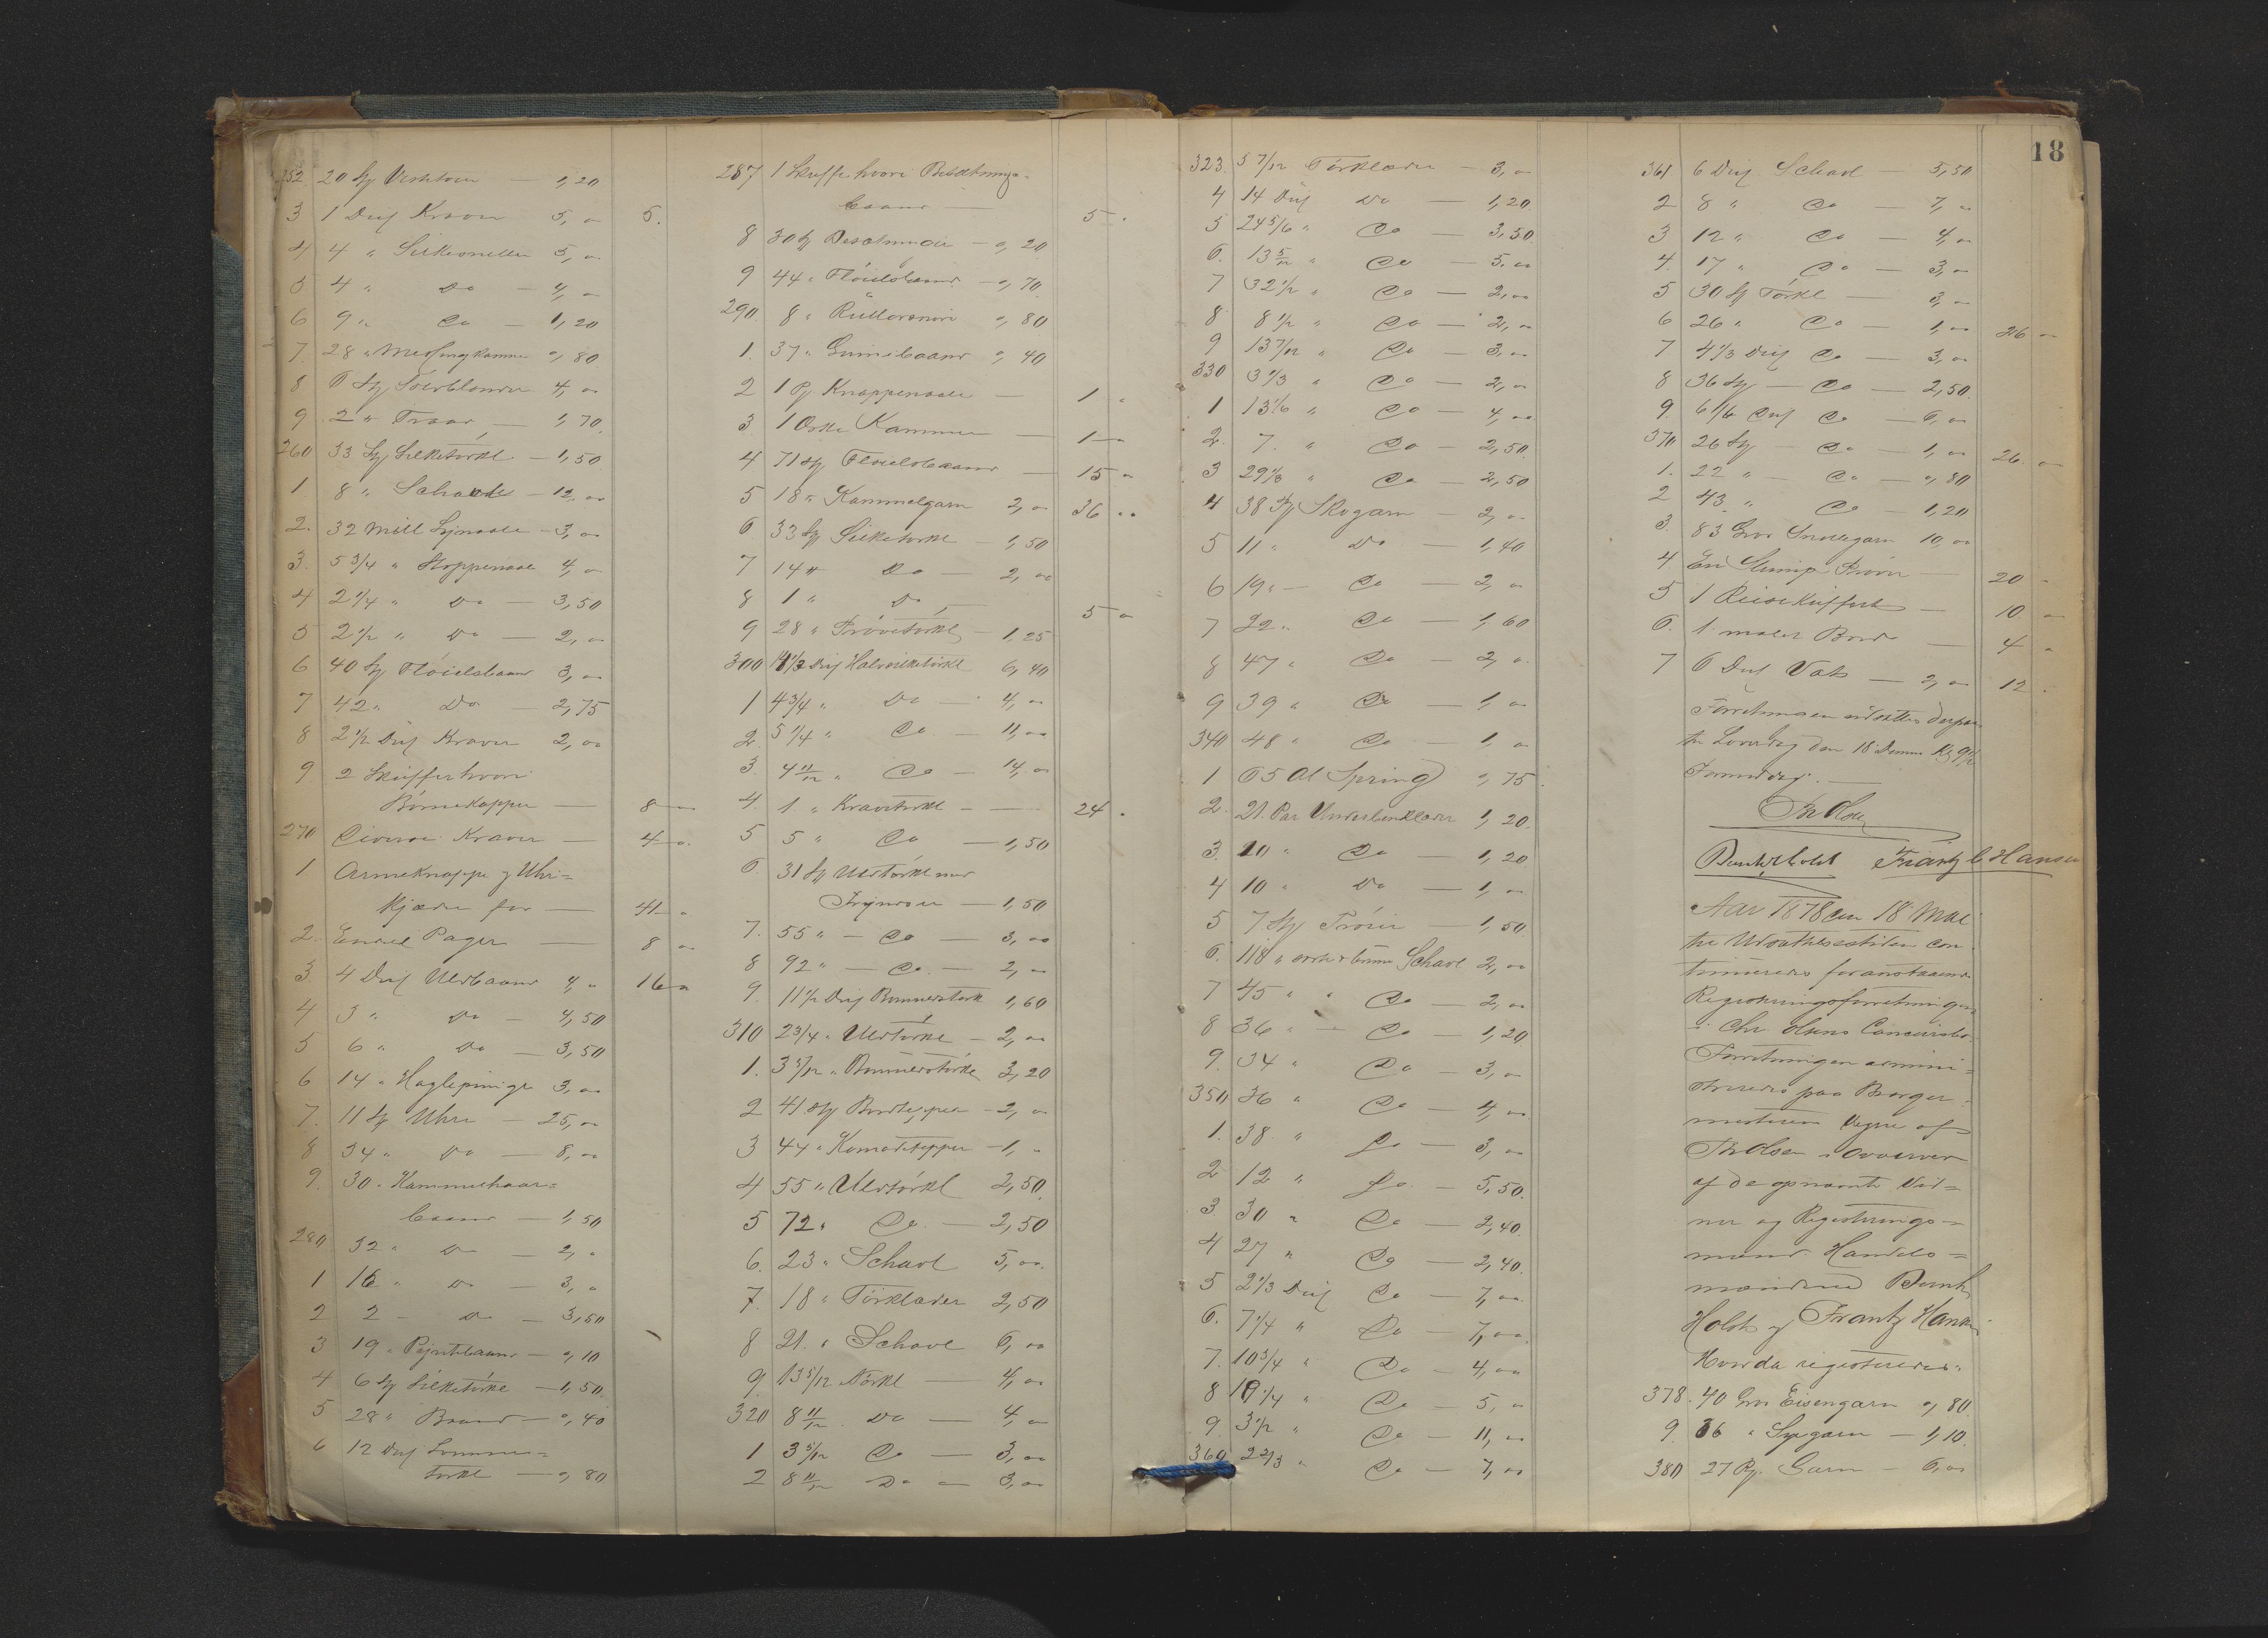 252 20 St Vestelover — 1,20
3 1 Dus Kraver 5, " 5.
4 4 " Silkeoneller 5, "
5 4 " Do — 4, "
6 9 " Do — 1,20
7. 28 " Messingkamme ", 80
8 6 St 4, "
9 2 " 1,70.
260 33 St Silketörkl — 1,50
1 8 " Schavle — 12, "
2. 32 Mill Synaale — 3, "
3. 5 3/4 " Stoppenaale 4, "
4 2 1/4 " Do — 3,50
5 2 1/2 " Do — 2, "
6 40 St Flöielsbaand 3, "
7 42 " Do — 2,75
8 2 1/2 Dus Kraver 2, "
9 2 Skuffer hvori
Börnekapper — 8 "
270 Diverse Kraver — 4 "
1 Ærmeknappe og Uhr=
kjæder for — 41 "
2. Endel Pager — 8 "
3. 4 Dus Uldbaand 4, " 16 "
4 3 " Do — 4,50
5 6 " Do — 3,50
6 14 " Haglepunge 3, "
7. 11 St Uhre — 25, "
8 34 " Do — 8, "
9. 30 " Kammelhaar=
baand — 1,50
280 32 " Do — 2, "
1 16 " Do — 3, "
2 2 — Do — 3,50
3 19 " Pyntebaand — ", 10
4 6 St Silketörkl — 1,50.
5 28 " Baand — ", 40
6 12 Dus Lomme=
törkl — ", 80
287 1 Skuffe hvori Besætnings-
baand — 5 "
8 30 St — ", 20
9 44 " Flöielsbaand — ", 70
290. 8 " Rullesnori ", 80
1. 37 " Gumibaand ", 40
2 1 P. Knappenaale — 1 "
3 1 Æske Kammer — 1 "
4 71 St Flöielsbaand — 15 "
5 18 " Kammelgarn 2, " 36 "
6 33 St Silketörkl — 1,50
7 14 " Do — 2, "
8 1 " Do — 5 "
9 28 " Prövetörkl — 1,25
300 11 1/2 Dus Halvsilketörkl 6,40
1 4 3/4 " Do — 4, "
2. 5 1/4 " Do — 11, "
3. 4 11/12 " Do — 14, "
4. 1 " Kravetörkl — 24 "
5 5 " Do — 1,50
6. 31 St Uldtörkl med
Fryndser — 1,50
7. 55 " — Do — 3, "
8 92 " — Do — 2, "
9. 11 1/2 Dus Bomuldstörkl 1,60
310 2 3/4 " Uldtörkl — 2, "
1. 3 5/12 " Bomuldstörkl 3,20
2 41 St Bordtepper — 2, "
3 44 " Komodetepper — 1, "
4 55 " Uldtörkl 2,50.
5 72 " Do — 2,50
6. 23 " Schavl 5, "
7. 18 " Törklæder 2,50
8 21. " Schavl 6, "
9. 13 5/12 Törkl — 4, "
320 8 11/12 Do — 4, "
1 3 5/12 Do — 3, "
2 8 11/12 Do — 3, "
18
323. 5 7/12 Törklæder — 3, "
4 14 Dus Do — 1,20
5 24 5/6 " Do — 3,50
6. 13 5/12 " Do — 5. "
7 32 1/2 " Do — 2, "
8 8 1/2 " Do — 2, "
9 13 7/12 " Do — 3, "
330 3 1/3 " Do — 2, "
1 13 1/6 " Do — 4, "
2. 7. " Do — 2,50.
3 29 1/3 " Do — 2,50
4 38 St Skogarn — 2, "
5 11 " Do — 1,40
6 19 " — Do — 2, "
7 22 " Do — 1,60
8 47 " Do — 2, "
9 39 " Do — 1, "
340 48 " Do — 1, "
1 65 Al Spring ", 75
2. 21. Par Underbenklæder 1,20.
3. 10 " Do — 1,20
4 10 " Do — 1, "
5 7 St Tröier — 1,50
6. 118 " Schavl 2, "
7 45 " " Do — 2, "
8 36 " — Do — 1,20
9. 34 " Do — 3, "
350 36 " Do — 4, "
1. 38 " Do — 3, "
2 12 " Do — 5,50.
3. 30 " Do — 2,40.
4 27 " Do — 2,40.
5 2 1/3 Dus Do — 7, "
6. 7 1/4 " Do — 7, "
7. 10 3/4 " Do — 4, "
8 19 1/4 " Do — 5, "
9. 3 1/2 " Do — 11, "
360 2 2/3 " Do — 7, "
361 6 Dus Schavl — 5,50
2 8 " Do — 7, "
3 12 " Do — 4, "
4. 17 " Do — 3, "
5 30 St Törkl — 3, "
6 26 " Do — 1, " 26 "
7 4 1/3 Dus Do — 3, "
8 36 St — Do — 2,50.
9. 6 1/6 Dus Do — 6, "
370 26 St — Do — 1, " 26 "
1. 22 " — Do — ", 80
2 43 " Do — 1,20
3. 83 Gros Snellegarn 10, "
4 En Slump Pröver — 20 "
5 1 Reisekuffert — 10 "
6. 1 malet Bord — 4 "
7 6 Dus Vat — 2, " 12 "
Forretningen udsattes derpaa
til Löverdag den 18 Dennes Kl 9 1/2
Formiddag. —
Th Olsen
Bernh. Holst Frantz C Hansen
Aar 1878 den 18 Mai
til Udsættelsestiden con
tinueredes foranstaaende
Registreringsforretning
i Chr. Olsens Concursbo.
Forretningen admini=
streredes paa Borger
mesterens Vegne af
Th Olsen i Overvær
af de opnævnte Vid=
ner og Registrerings=
mænd Handels=
mændene Bernh
Holst og Frantz Hansen
Hvorda registreredes.
378. 40 Gros Eisengarn ", 80
9. 36 " Sygarn — 1,10.
380 27 P. Garn 6, "